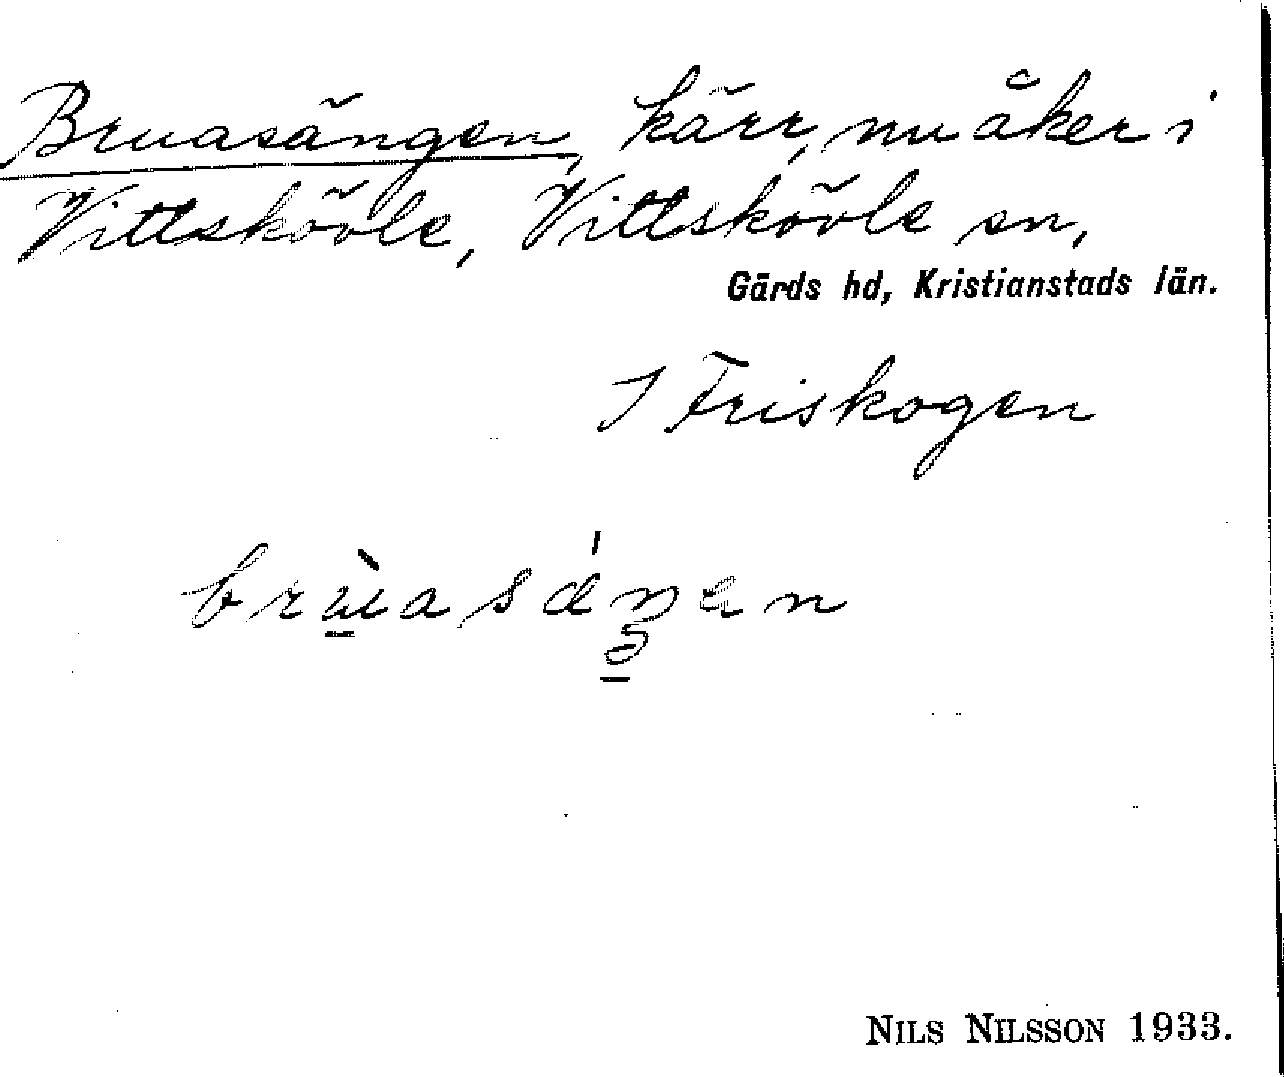 Bruasängen, kärr, nu åker i
Vittskövle, Vittskövle sn,
Gärds hd, Kristianstads län.
I Friskogen
NILS NILSSON 1933.